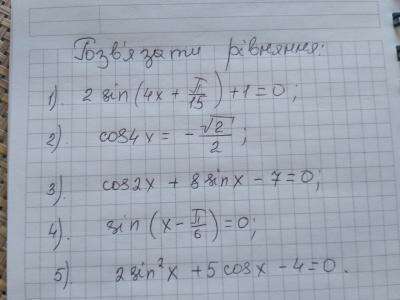 Розв'язати рівняння:
1). 2 sin(4x + π/15) + 1 = 0;
2). cos4x = -√2/2;
3). cos2x + 8 sinx - 7 = 0;
4). sin(x - π/6) = 0;
5). 2 sin²x + 5 cosx - 4 = 0.